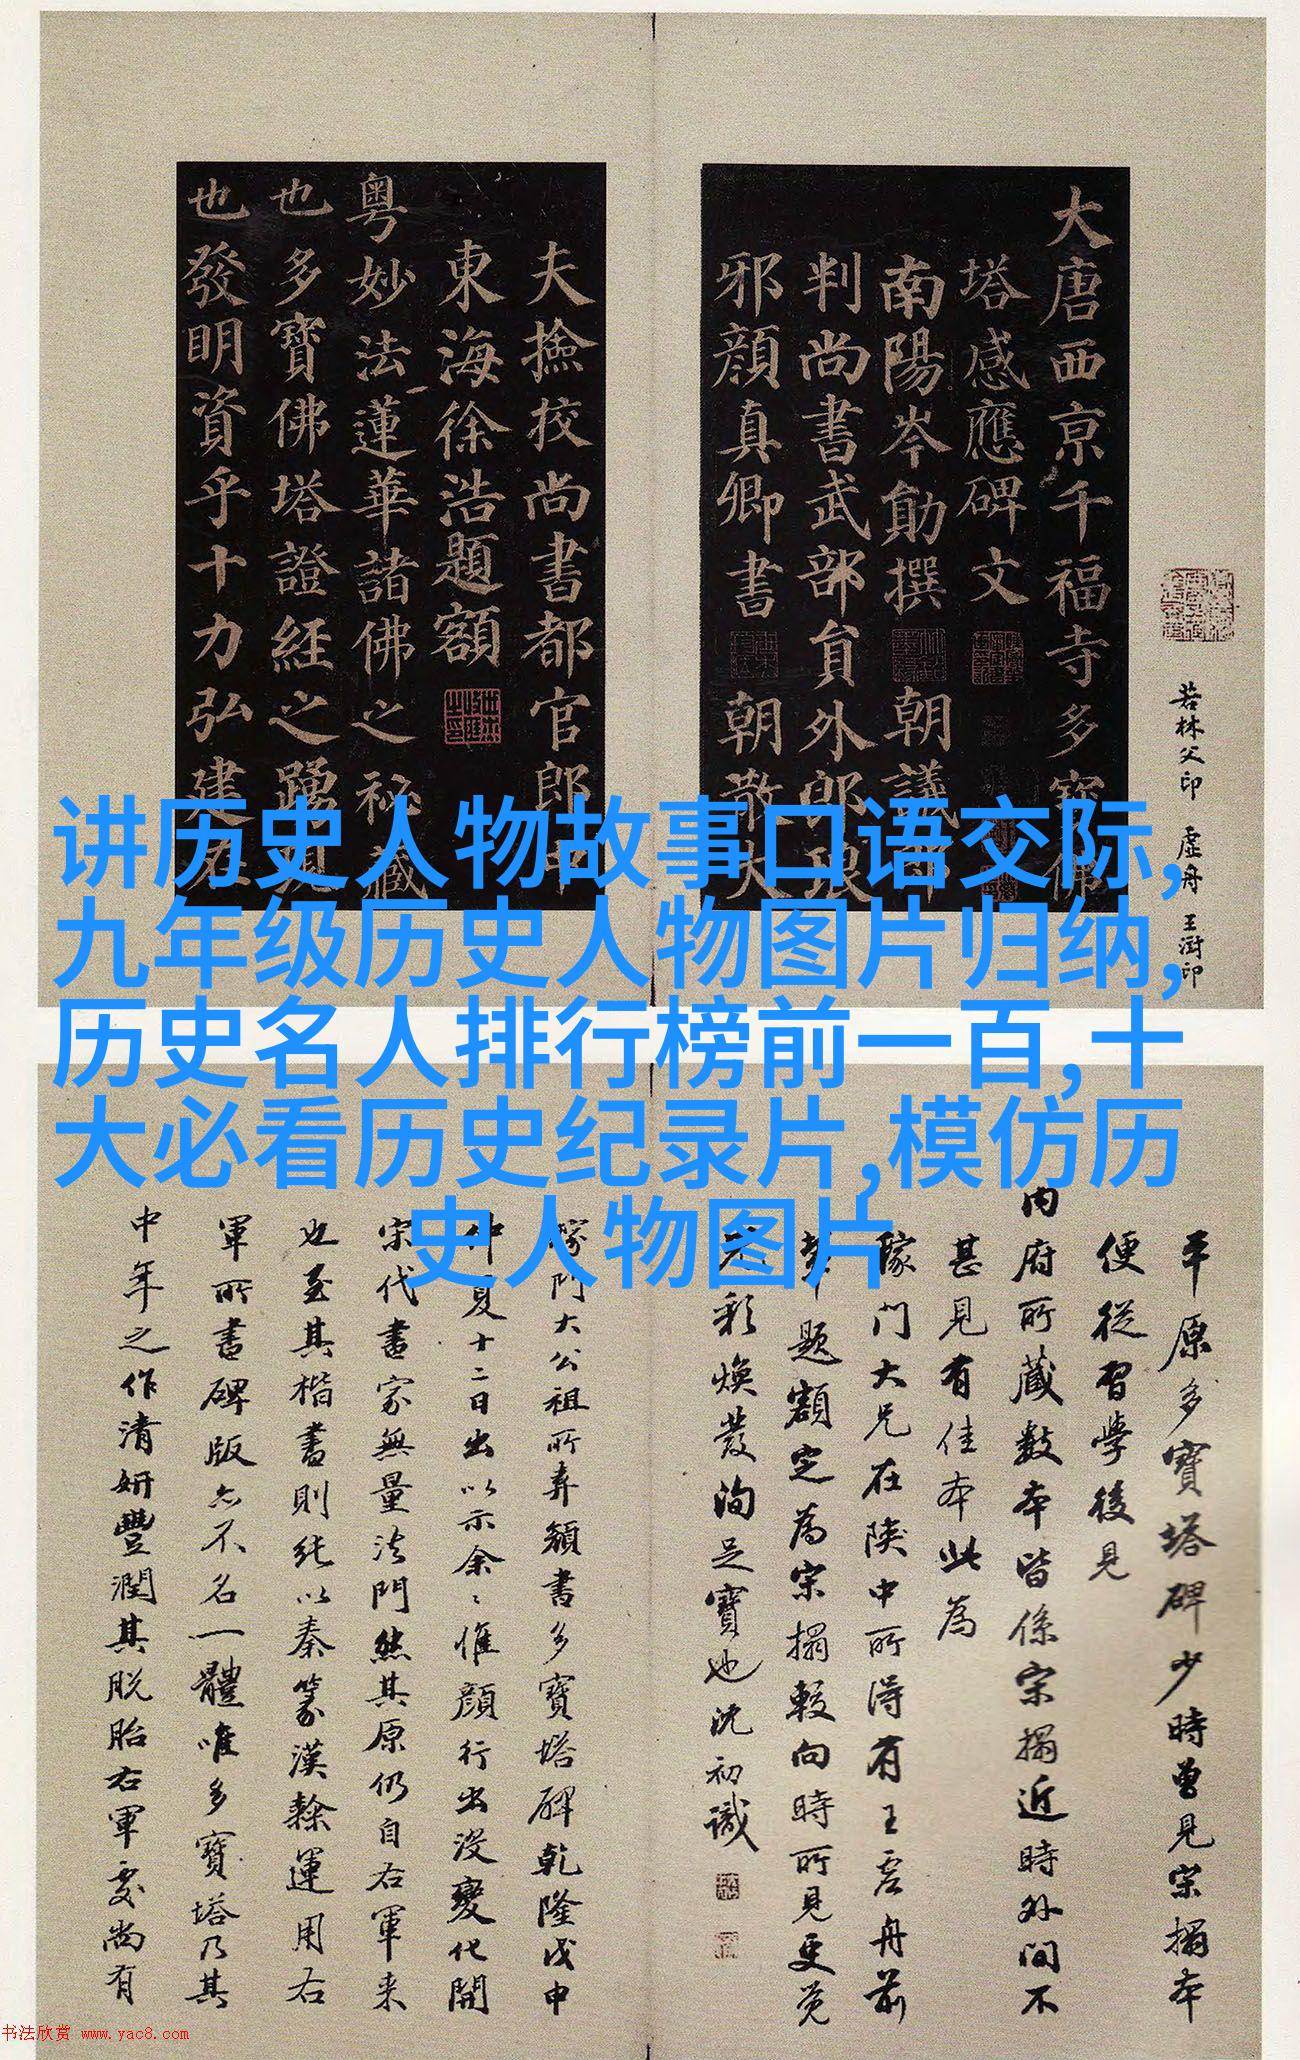 大唐西京千福寺多寶佛
塔感應碑文
南陽岑勛撰
朝議郎
判尚書武部員外郎琅
邪顏真卿書
朝散大
夫撿挍尚書都官郎中
東海徐浩題額
粵妙法蓮華諸佛之祕藏
也多寶佛塔證經之踴現
也發明資乎十力弘建在
若林父印
虛舟
王澍印
讲历史人物故事口语交际,
九年级历史人物图片归纳,
历史名人排行榜前一百,十
大必看历史纪录片,模仿历
史人物图片
平原多寶塔碑少時曾見宋搨本
便從習學後見
内府所藏數本皆係宋搨近時外間不
甚見有佳本此為
稼門大兄在陝中所得有王虛舟前
輩題額定為宋搨較向時所見更覺
光彩煥發洵足寶也沈初識
稼門大公祖所弆顏書多寶塔碑乾隆戊申
仲夏十二日出以示余〻惟顏行出沒變化開
宋代書家無量法門然其原仍自右軍来
也至其楷書則純以秦篆漢隸運用右
軍所書碑版亦不名一體唯多寶塔乃其
中年之作清妍豐潤其脫胎右軍處尚有
书法欣赏 www.yac8.com